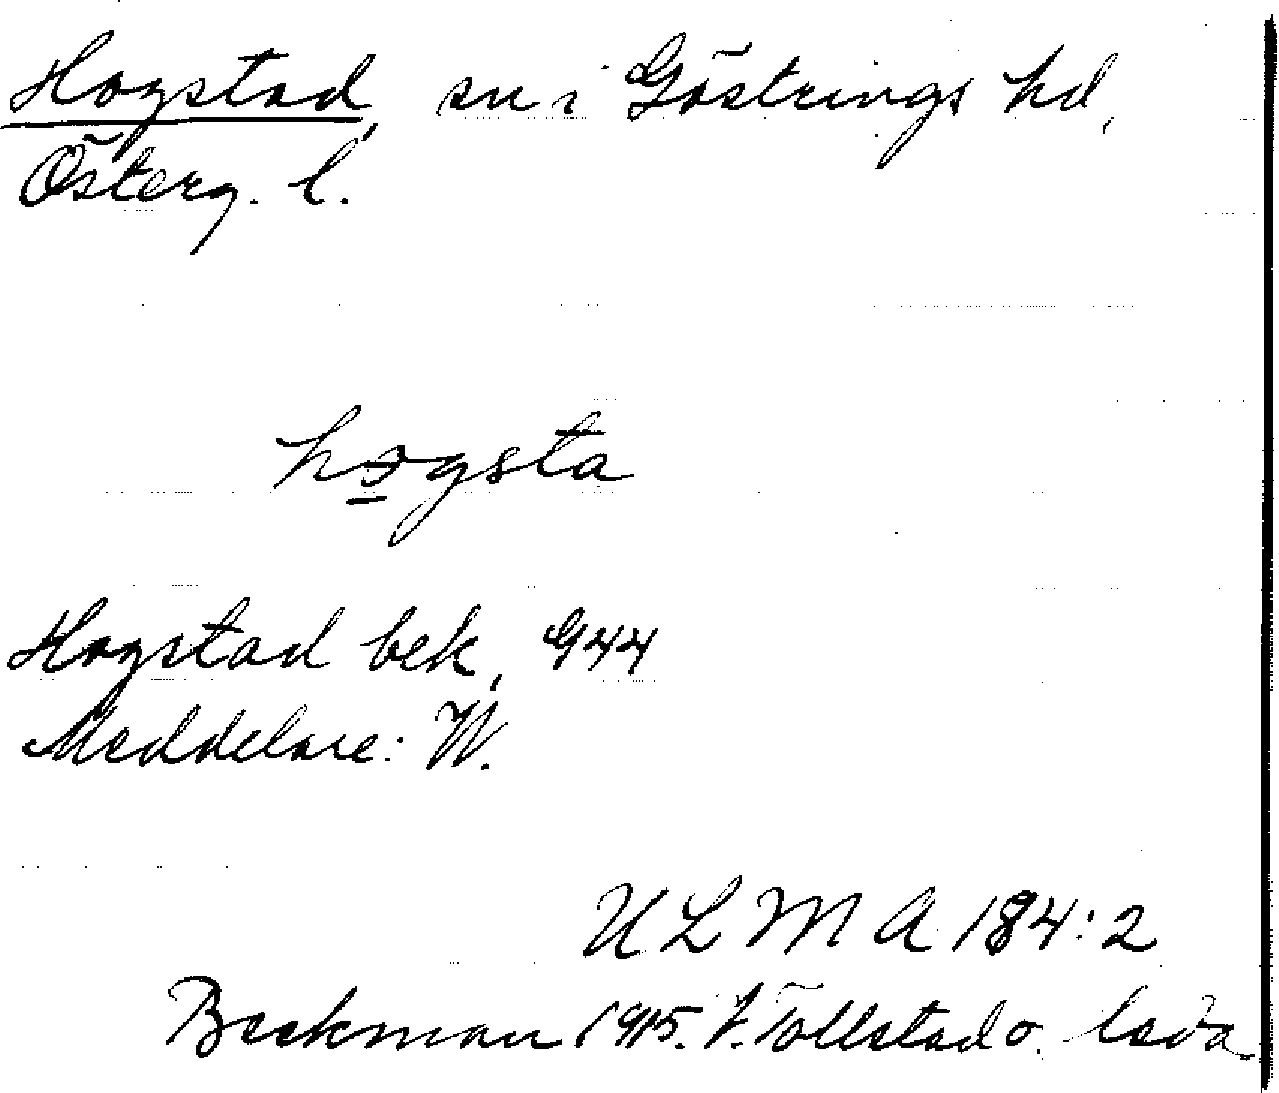 Hogstad, sn i Göstrings hd,
Österg. l.
hogsta
Hogstad bek, G44
Meddelare: W.
ULMA 184:2
Beckman 1915. V. Tollstad o.